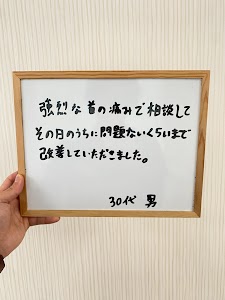 強烈な首の痛みで相談して
その日のうちに問題ないくらいまで
改善していただきました。
30代 男